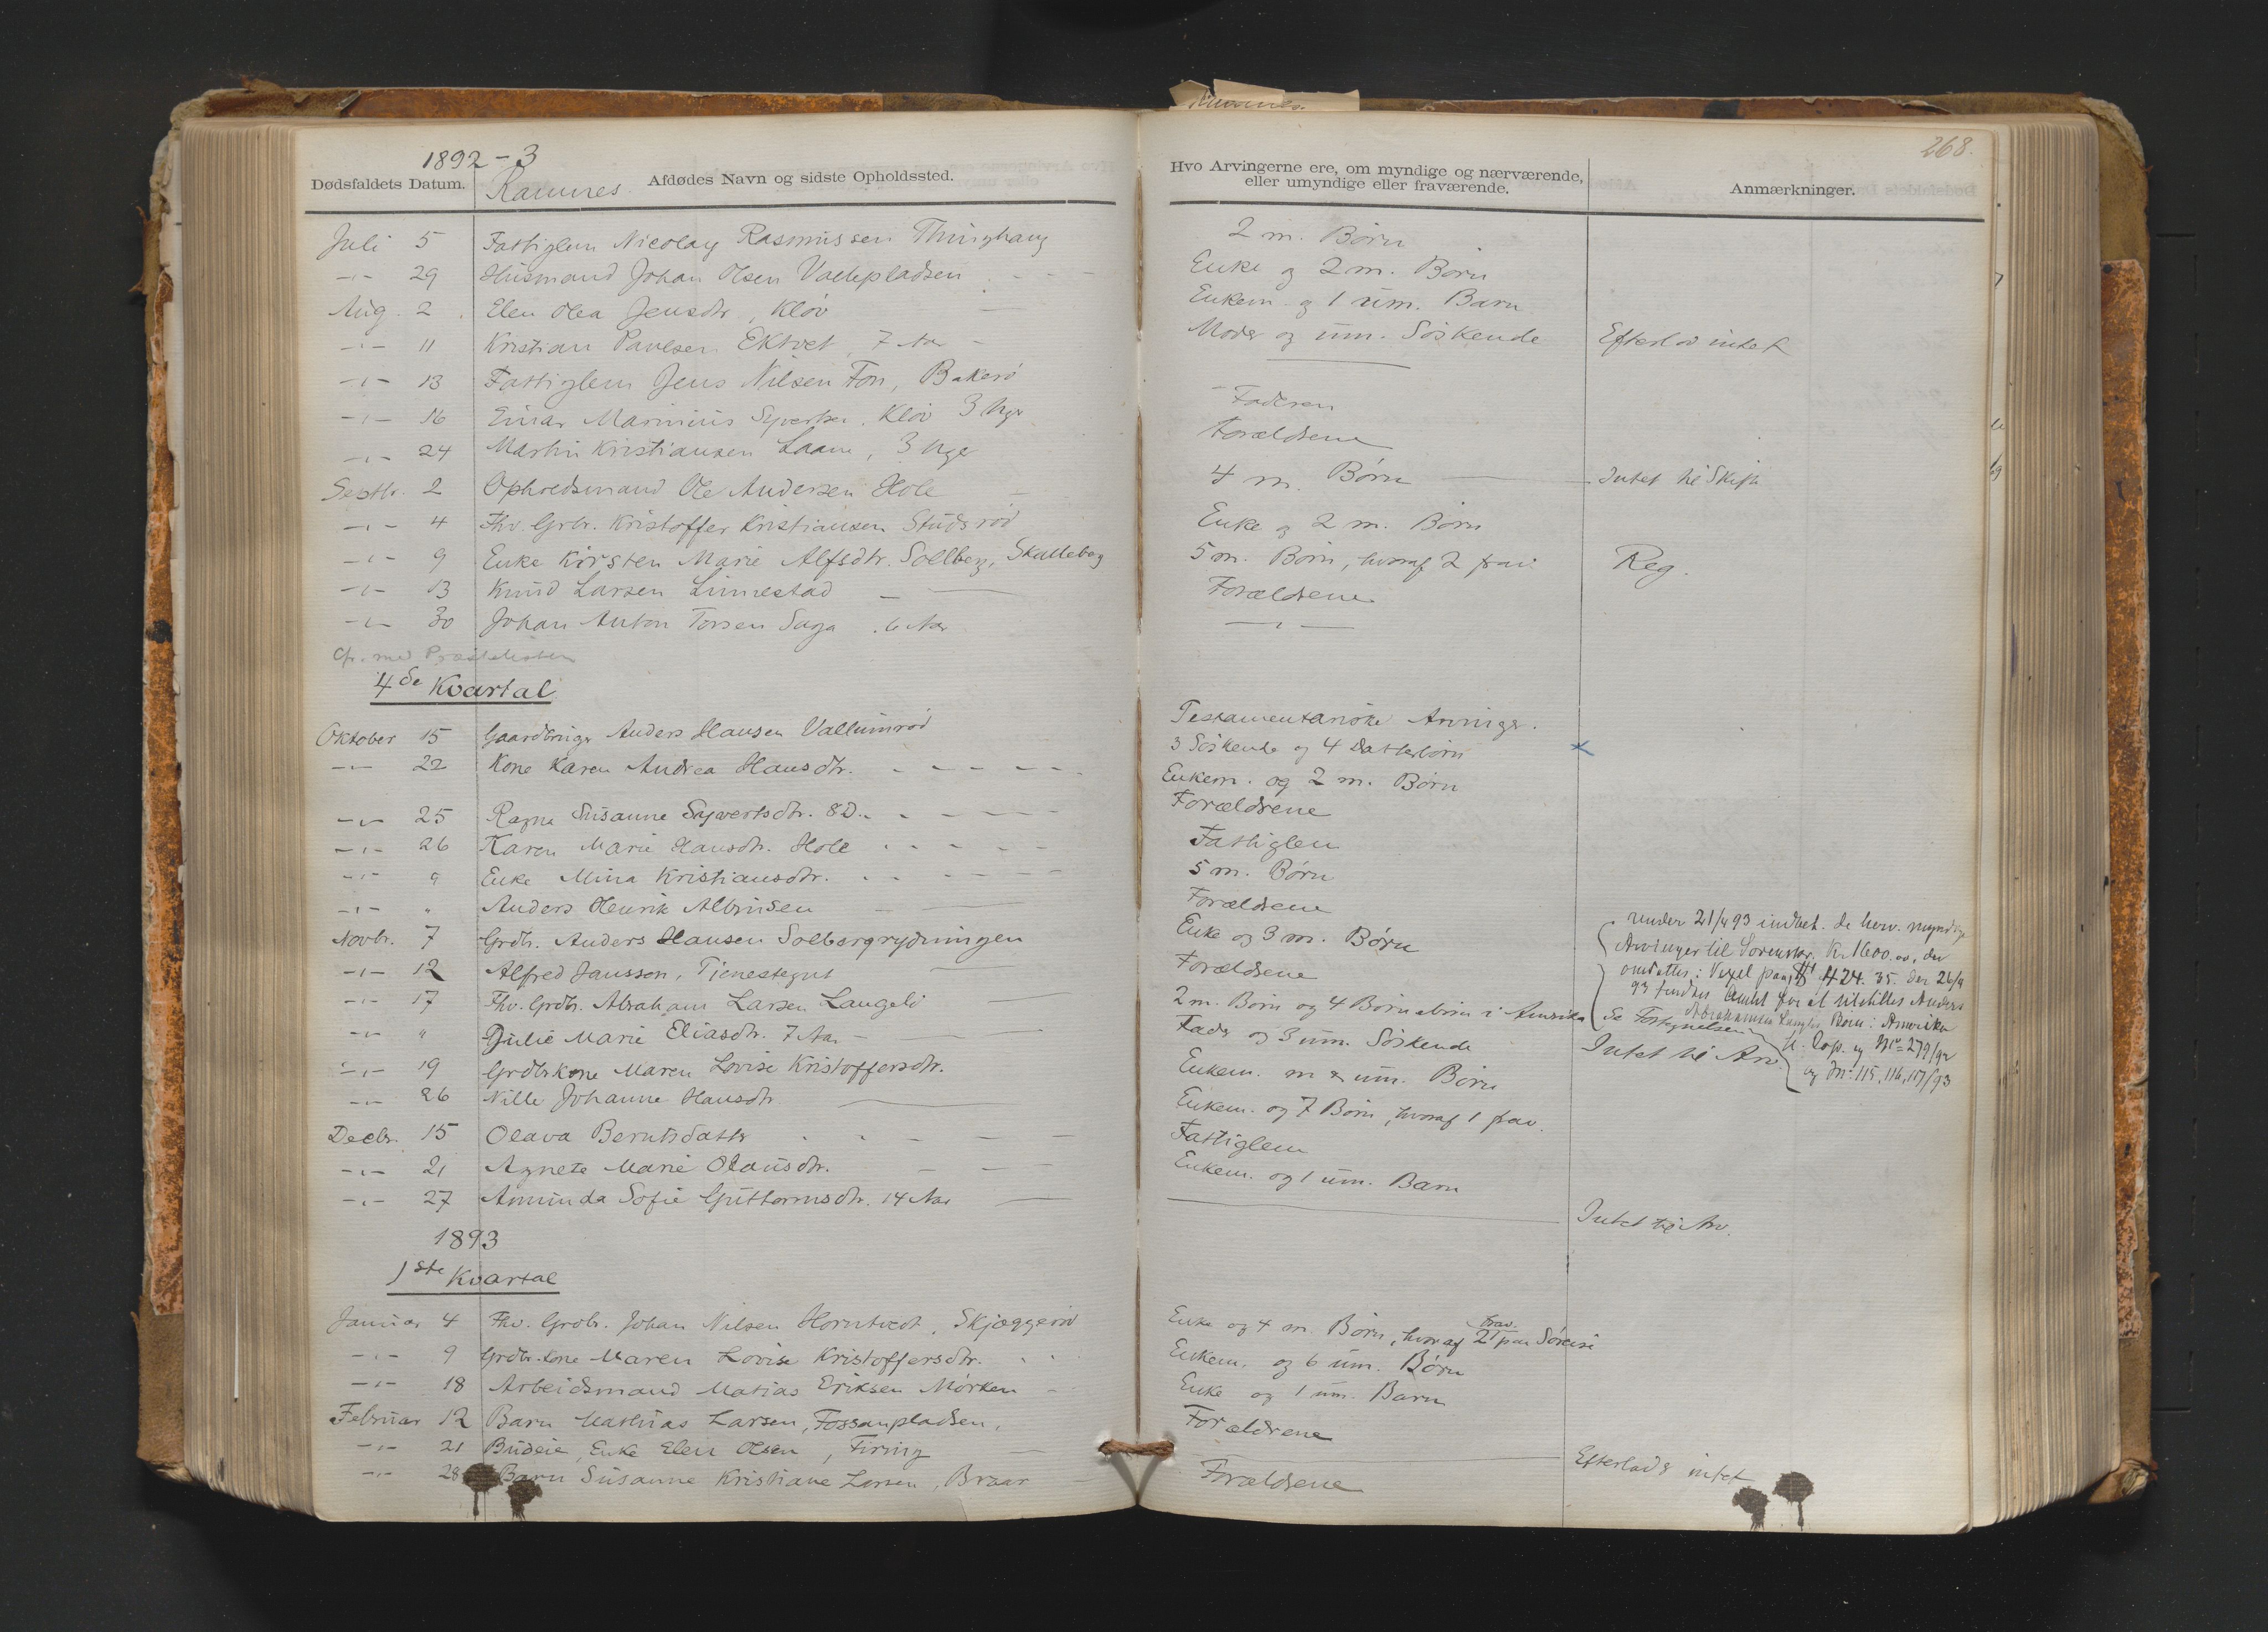 1892-3
Dødsfaldets Datum. Ramnes. Afdødes Navn og sidste Opholdssted.
Juli 5 Fattiglem Nicolay Rasmussen Thinghaug
-"- 29 Husmand Johan Olsen Vallepladsen
Aug. 2 Elen Olea Jensdtr, Kløv
-"- 11 Kristian Paulsen Ektvet, 7 Aar
-"- 13 Fattiglem Jens Nilsen Fon, Bakerø
-"- 16 Einar Marinius Syvertsen, Kløv 3 Uger
-"- 24 Martin Kristiansen Laane, 3 Uger
Septbr. 2 Opholdsmand Ole Andersen Hole
-"- 4 Fhv. Grbr. Kristoffer Kristiansen Studsrød
-"- 9 Enke Kirsten Marie Alfsdtr. Sollberg, Skalleberg
-"- 13 Knud Larsen Linnestad
-"- 30 Johan Anton Torsen Saga. 6 Aar
Cfr. med Præstelisten
4de Kvartal
Oktober 15 Gaardbruger Anders Hansen Vallumrød
-"- 22 Kone Karen Andrea Hansdtr.
-"- 25 Ragna Susanne Syvertsdtr. 8 D.
-"- 26 Karen Marie Hansdtr. Hole
-"- " Enke Mina Kristiansdtr.
-"- " Anders Henrik Albinsen
Novbr. 7 Grdbr. Anders Hansen Solbergrydningen
-"- 12 Alfred Jansson, Tjenestegut
-"- 17 Fhv. Grdbr. Abraham Larsen Langeli
-"- " Julie Marie Eliasdtr. 7 Aar
-"- 19 Grdbrkone Maren Lovise Kristoffersdtr.
-"- 26 Nille Johanne Hansdtr.
Decbr. 15 Olava Berntsdatter
-"- 21 Agnete Marie Olausdtr.
-"- 27 Amunda Sofie Guttormsdtr. 14 Aar
1893
1ste Kvartal
Januar 4 Fhv. Grdbr. Johan Nilsen Horntvedt, Skjæggerød
-"- 9 Grdbr.kone Maren Lovise Kristoffersdtr.
-"- 18 Arbeidsmand Matias Eriksen Mørken
Februar 12 Barn Mathias Larsen, Fossanpladsen,
-"- 21 Budeie, Enke Elen Olsen, Firing
-"- 28 Barn Susanne Kristiane Larsen, Braar
268.
Hvo Arvingerne ere, om myndige og nærværende,
eller umyndige eller fraværende. Anmærkninger.
2 m. Børn
Enke og 2 m. Børn
Enkem. og 1 um. Barn
Moder og um. Søskende Efterlod intet
Faderen
Forældrene
4 m. Børn Intet til Skifte
Enke og 2 m. Børn
5 m. Børn, hvoraf 2 frav. Reg.
Forældrene
-"-
Testamentariske Arvinger.
3 Søskende og 4 Datterbørn x
Enkem. og 2 m. Børn
Forældrene
Fattiglem
5 m. Børn
Forældrene
Enke og 3 m. Børn
Forældrene
2 m. Børn og 4 Børnebørn i Amerika
Fader og 3 um. Søskende
Enkem. m & um. Børn Intet til Arv.
Enkem. og 7 Børn, hvoraf 1 frav.
Fattiglem
Enkem. og 1 um. Barn
Intet til Arv.
Under 21/4 93 indbet. de herv. myndige
Arvinger til Sorenskr. Kr. 1600.00, der
omsattes i Vexel paa 424.35. Der 26/4
93 sendtes Amtet for at tilstilles Anders
Abrahamsen Langelis Børn i Amerika
Se Forsyndelsen
U. Cop. og No 279/92
og No 115, 116, 117/93
Enke og 4 m. Børn, hvoraf 2 frav. paa Søreise
Enkem. og 6 um. Børn
Enke og 1 um. Barn
Forældrene
Efterlod intet
Forældrene